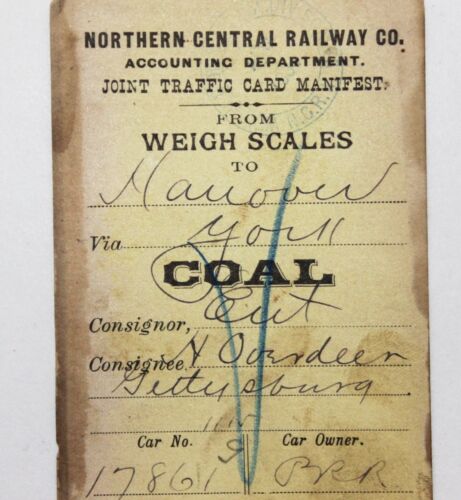 NORTHERN CENTRAL RAILWAY CO.
ACCOUNTING DEPARTMENT.
JOINT TRAFFIC CARD MANIFEST.
FROM
WEIGH SCALES
TO
Hanover
Via York
COAL
Consignor, Ent
Consignee H Overdeer
Gettysburg
Car No. Car Owner.
17861 PRR